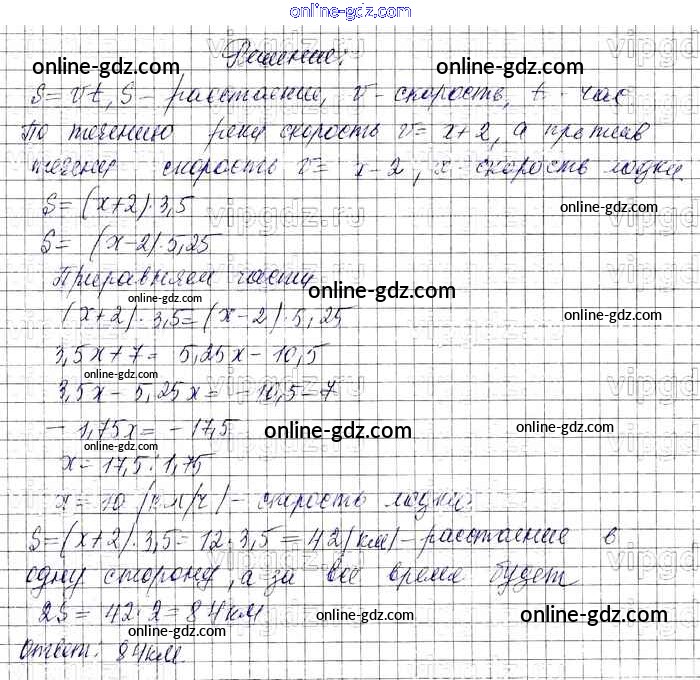 online-gdz.com
Решение:
online-gdz.com
online-gdz.com
S = vt, S - расстояние, v - скорость, t - час
По течению реки скорость v = x+2, а против
течения скорость v = x-2, x - скорость лодки.
S = (x+2)·3,5
online-gdz.com
vipgdz.ru
S = (x-2)·5,25
Приравняем части
online-gdz.com
online-gdz.com
(x+2)·3,5 = (x-2)·5,25
online-gdz.com
3,5x+7 = 5,25x-10,5
online-gdz.com
3,5x - 5,25x = -10,5-7
-1,75x = -17,5
online-gdz.com
online-gdz.com
online-gdz.com
x = 17,5:1,75
x = 10 (км/ч) - скорость лодки.
S = (x+2)·3,5 = 12·3,5 = 42 (км) - расстояние в
одну сторону, а за все время будет
2S = 42·2 = 84 км
online-gdz.com
online-gdz.com
online-gdz.com
Ответ: 84 км.
online-gdz.com